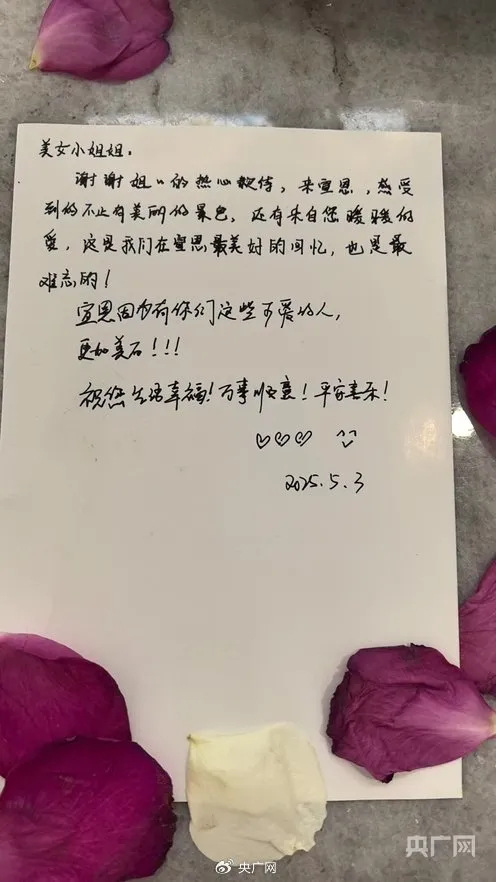 美女小姐姐：
谢谢姐〃的热心款待，来宣恩，感受
到的不止有美丽的景色，还有来自您暖暖的
爱，这是我们在宣恩最美好的回忆，也是最
难忘的！
宣恩因为有你们这些可爱的人，
更加美不！！！
祝您生活幸福！万事顺意！平安喜乐！
♡♡♡ ^^
2025.5.3
央广网
央广网